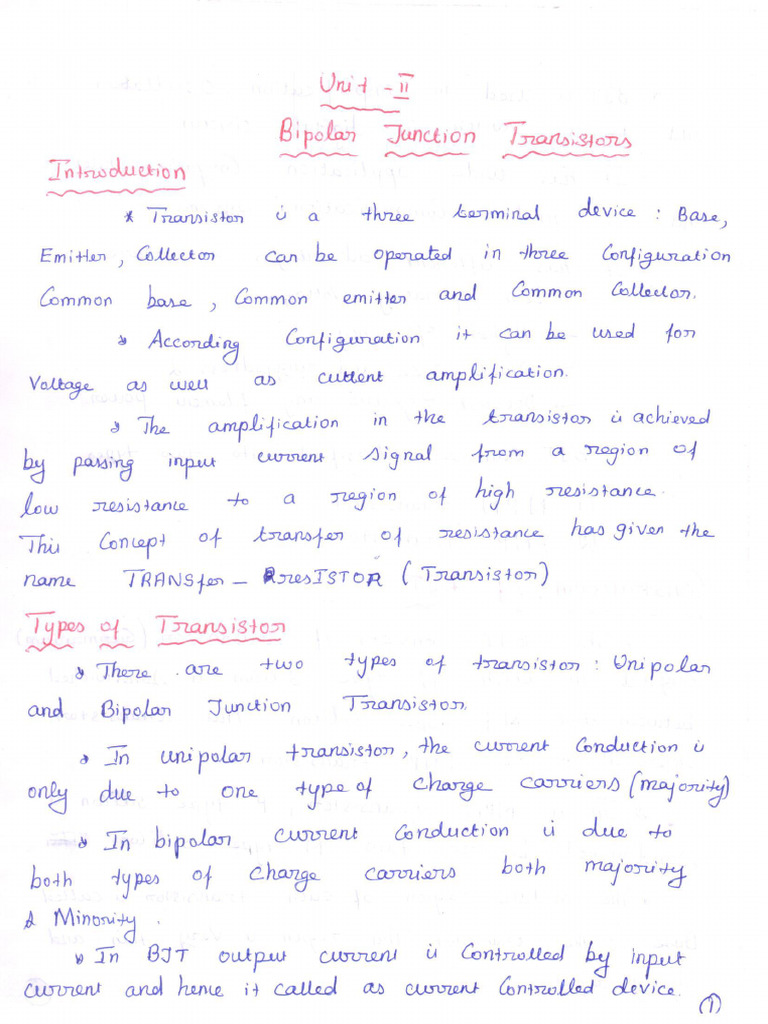 Unit - II
Bipolar Junction Transistors
Introduction
* Transistor is a three terminal device : Base,
Emitter, Collector can be operated in three Configuration
Common base, Common emitter and Common Collector.
* According Configuration it can be used for
Voltage as well as current amplification.
* The amplification in the transistor is achieved
by passing input current signal from a region of
low resistance to a region of high resistance.
This Concept of transfer of resistance has given the
name TRANSfer - resISTOR (Transistor)
Types of Transistor
* There are two types of transistor : Unipolar
and Bipolar Junction Transistor.
* In unipolar transistor, the current Conduction is
only due to one type of charge carriers (majority)
* In bipolar, current Conduction is due to
both types of charge carriers both majority
& Minority.
* In BJT output current is Controlled by input
current and hence it called as current Controlled device.
1